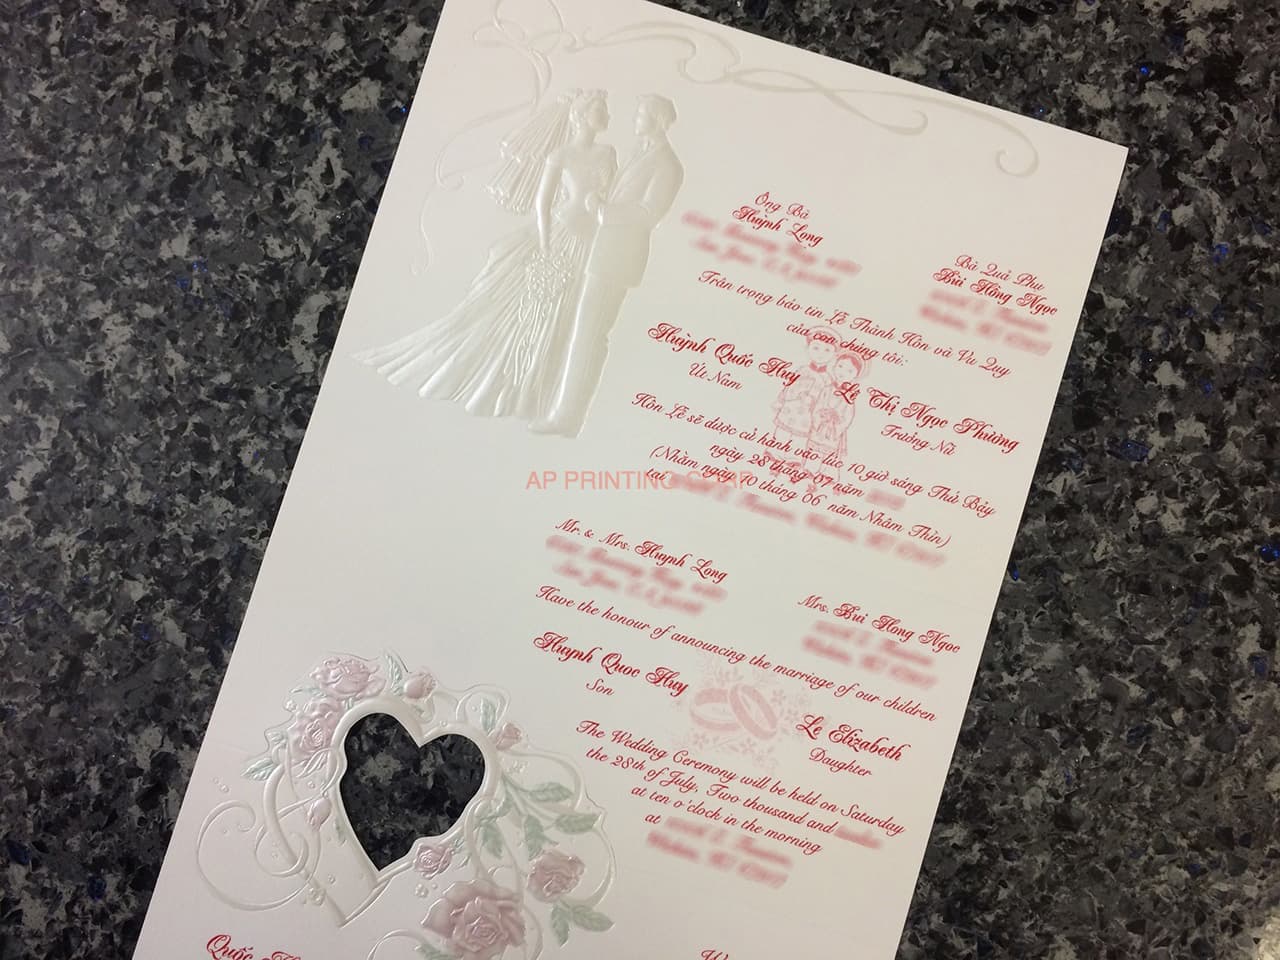 Ông Bà
Huỳnh Long
Bà Quả Phụ
Bùi Hồng Ngọc
Trân trọng báo tin Lễ Thành Hôn và Vu Quy
của con chúng tôi:
Huỳnh Quốc Huy
Út Nam
Lê Thị Ngọc Phượng
Trưởng Nữ
Hôn Lễ sẽ được cử hành vào lúc 10 giờ sáng Thứ Bảy
ngày 28 tháng 07 năm
(Nhằm ngày 10 tháng 06 năm Nhâm Thìn)
tại
AP PRINTING CORP
Mr. & Mrs. Huynh Long
Mrs. Bui Hong Ngoc
Have the honour of announcing the marriage of our children
Huynh Quoc Huy
Son
Le Elizabeth
Daughter
The Wedding Ceremony will be held on Saturday
the 28th of July, Two thousand and
at ten o'clock in the morning
at
Quốc